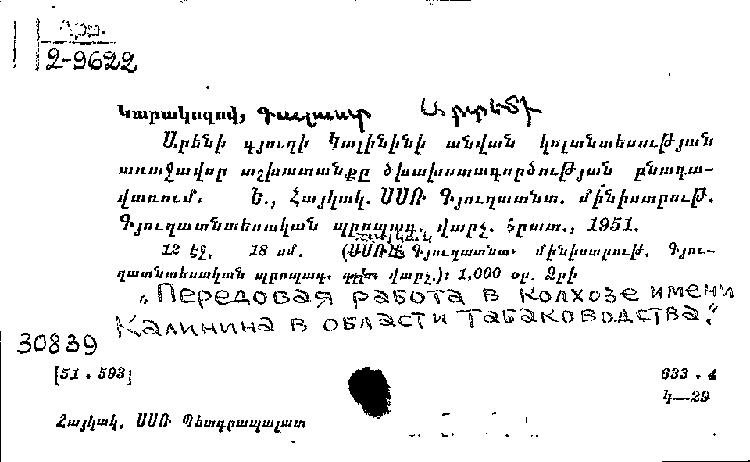 2-9622
Կարակոզով,
Արենի գյուղի Կալինինի անվան կոլտնտեսության
առաջավոր աշխատանքը ծխախոտագործության բնագա-
վառում. Ե., Հայկակ. ՍՍՌ Գյուղատնտ. մինիստրութ.
Գյուղատնտեսական պրոպագ. վարչ. հրատ., 1951.
12 էջ. 18 սմ. (ՍՍՌ Գյուղատնտ. մինիստրութ. Գյու-
ղատնտեսական պրոպագ. վարչ.): 1,000 օր. Ձրի
„Передовая работа в колхозе имени
Калинина в области Табаководства."
30839
[51.593] 633.4
Կ—29
Հայկակ. ՍՍՌ Պետգրապալատ